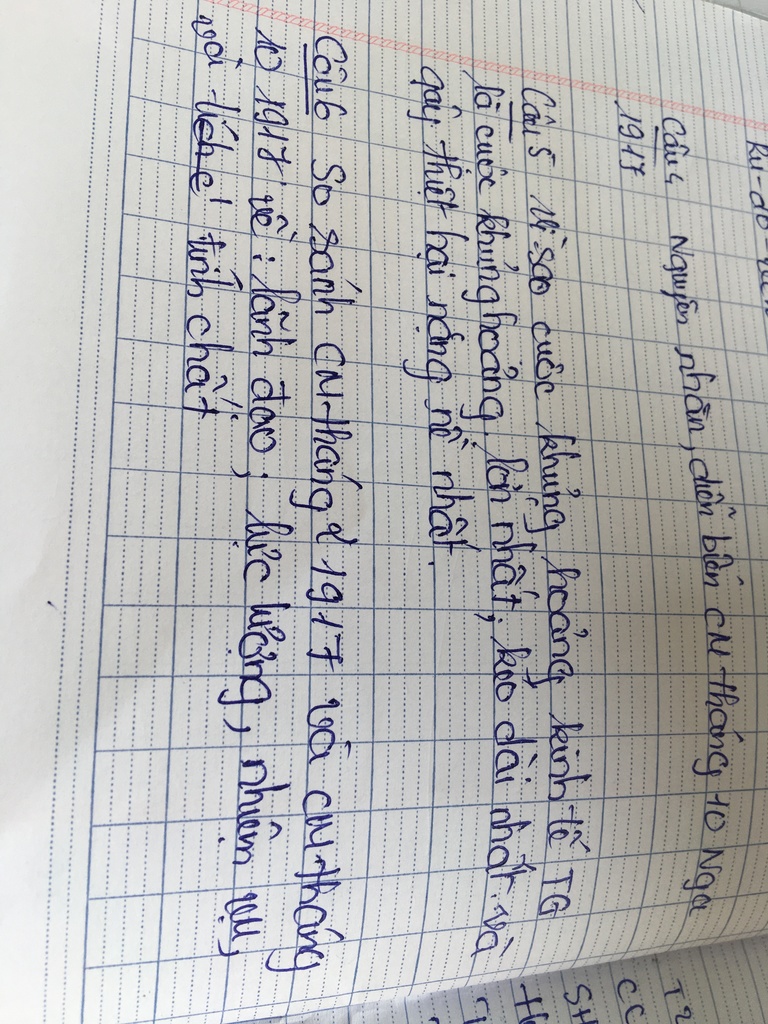 Câu 4 Nguyên nhân, diễn biến CM tháng 10 Nga
1917
Câu 5 Vì sao cuộc khủng hoảng kinh tế TG
là cuộc khủng hoảng lớn nhất, kéo dài nhất và
gây thiệt hại nặng nề nhất.
Câu 6 So sánh CM tháng 2 1917 và CM tháng
10 1917 về: lãnh đạo, lực lượng, nhiệm vụ,
và tính chất